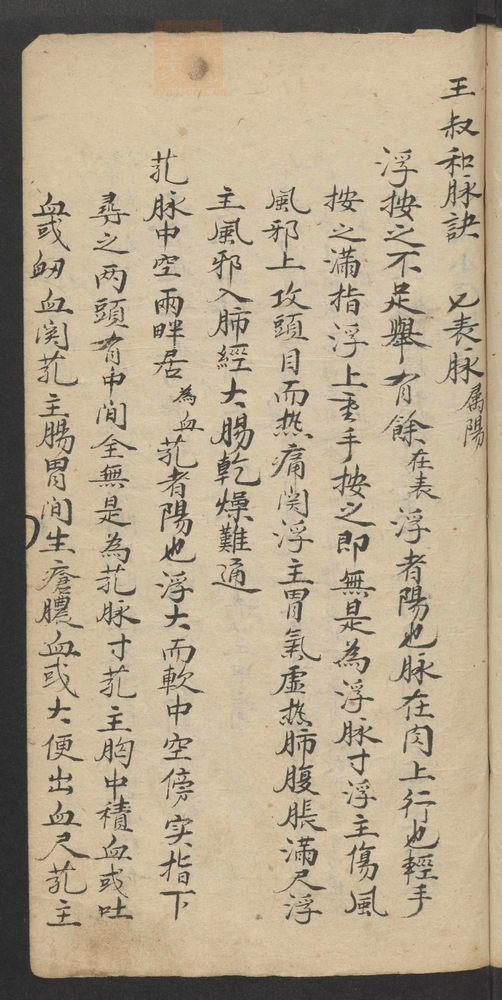 王叔和脉訣 七表脉屬陽
浮按之不足舉有餘在表浮者陽也脉在肉上行也輕手
按之滿指浮上重手按之即無是為浮脉寸浮主傷風
風邪上攻頭目而热痛関浮主胃氣虛热肺腹脹滿尺浮
主風邪入肺經大腸乾燥難通
芤脉中空兩畔居為血芤者陽也浮大而軟中空傍实指下
尋之两頭有中间全無是為芤脉寸芤主胸中積血或吐
血或衂血関芤主腸胃间生瘡膿血或大便出血尺芤主